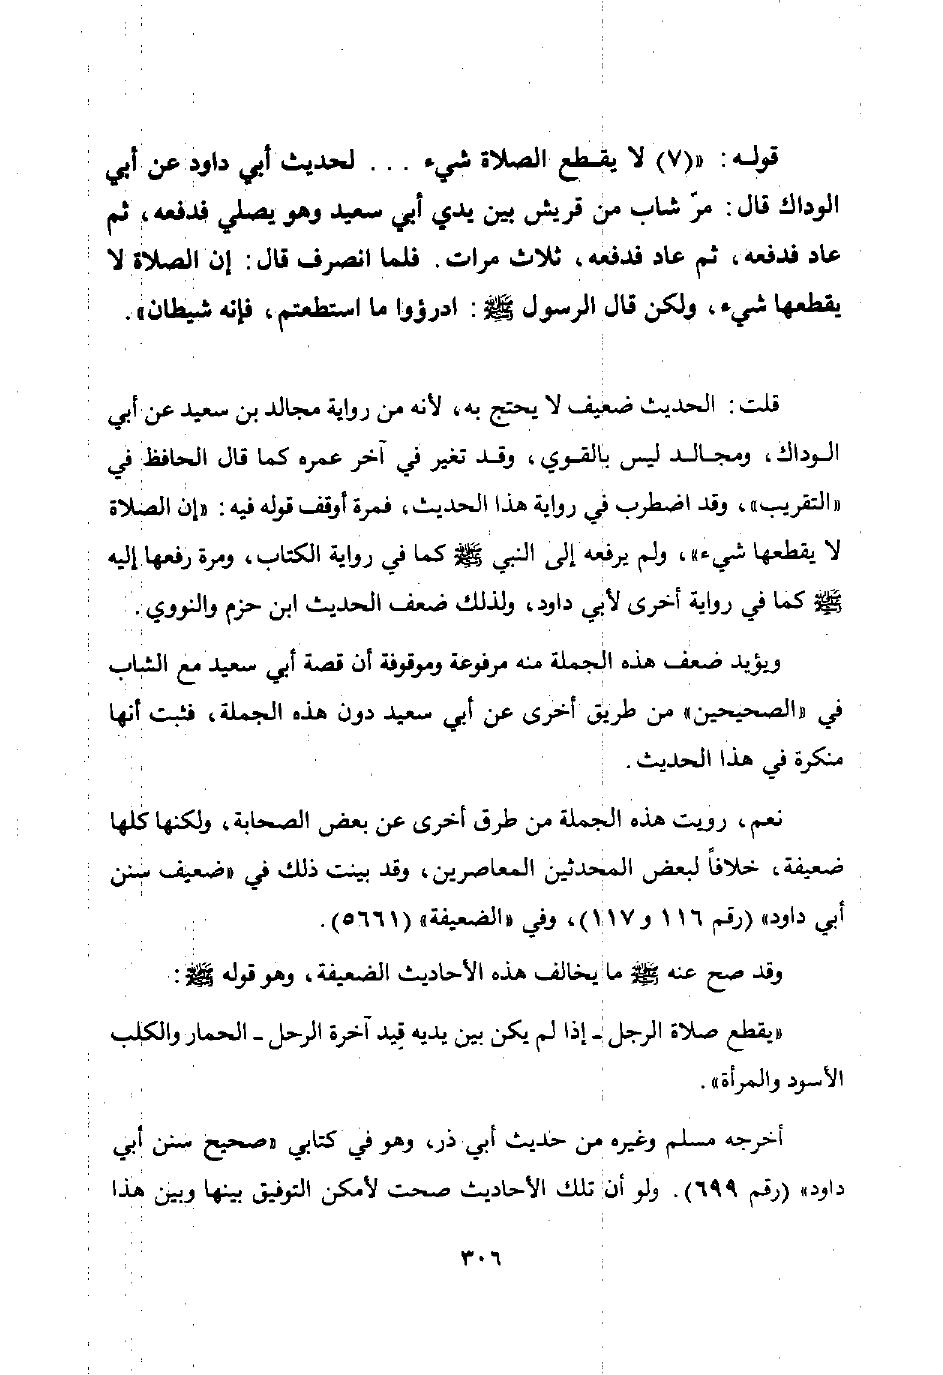 قولـه: «(٧) لا يقـطع الصلاة شيء . . . لحديث أبي داود عن أبي
الوداك قال: مرّ شاب من قريش بين يدي أبي سعيد وهو يصلي فدفعه، ثم
عاد فدفعه، ثم عاد فدفعه، ثلاث مرات. فلما انصرف قال: إن الصلاة لا
يقطعها شيء، ولكن قال الرسول ﷺ: ادرؤوا ما استطعتم، فإنه شيطان».
قلت: الحديث ضعيف لا يحتج به، لأنه من رواية مجالد بن سعيد عن أبي
الـوداك، ومجـالـد ليس بالقـوي، وقـد تغير في آخر عمره كما قال الحافظ في
«التقريب»، وقد اضطرب في رواية هذا الحديث، فمرة أوقف قوله فيه: «إن الصلاة
لا يقطعها شيء»، ولم يرفعه إلى النبي ﷺ كما في رواية الكتاب، ومرة رفعها إليه
ﷺ كما في رواية أخرى لأبي داود، ولذلك ضعف الحديث ابن حزم والنووي.
ويؤيد ضعف هذه الجملة منه مرفوعة وموقوفة أن قصة أبي سعيد مع الشاب
في «الصحيحين» من طريق أخرى عن أبي سعيد دون هذه الجملة، فثبت أنها
منكرة في هذا الحديث.
نعم، رويت هذه الجملة من طرق أخرى عن بعض الصحابة، ولكنها كلها
ضعيفة، خلافاً لبعض المحدثين المعاصرين، وقد بينت ذلك في «ضعيف سنن
أبي داود» (رقم ١١٦ و ١١٧)، وفي «الضعيفة» (٥٦٦١).
وقد صح عنه ﷺ ما يخالف هذه الأحاديث الضعيفة، وهو قوله ﷺ:
«يقطع صلاة الرجل ـ إذا لم يكن بين يديه قيد آخرة الرحل ـ الحمار والكلب
الأسود والمرأة».
أخرجه مسلم وغيره من حديث أبي ذر، وهو في كتابي «صحيح سنن أبي
داود» (رقم ٦٩٩). ولو أن تلك الأحاديث صحت لأمكن التوفيق بينها وبين هذا
٣٠٦